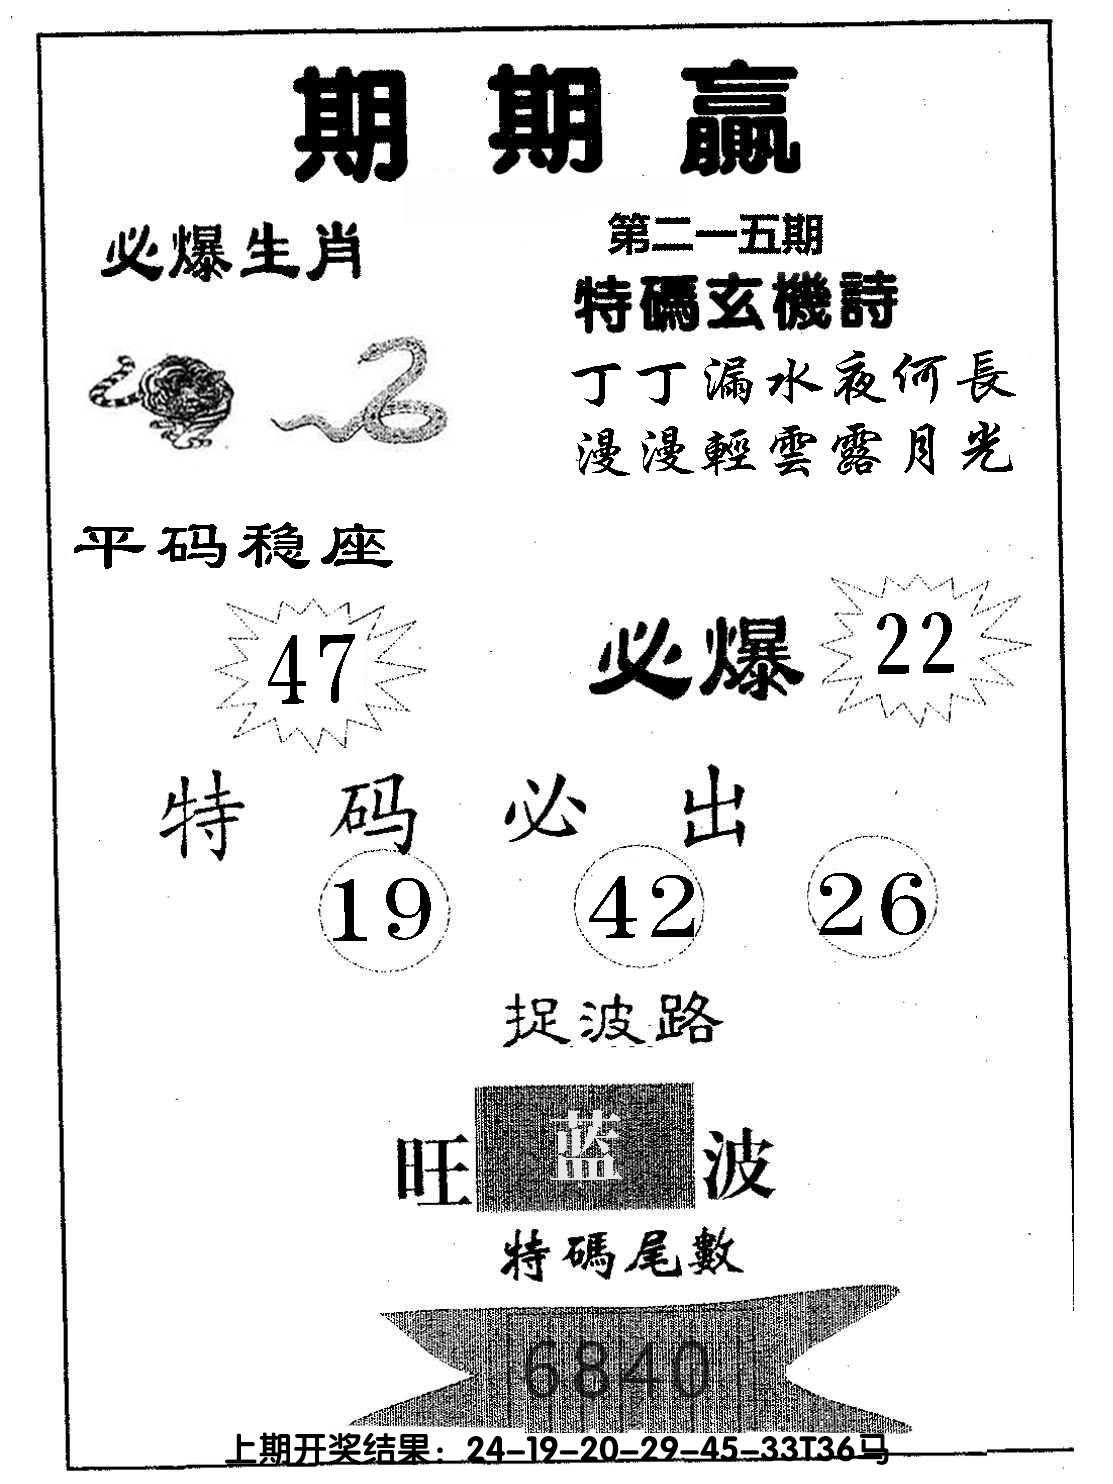 期期赢
必爆生肖
第二一五期
特碼玄機詩
丁丁漏水夜何長
漫漫輕雲露月光
平码稳座
47
必爆 22
特码必出
19 42 26
捉波路
旺蓝波
特碼尾數
6840
上期开奖结果：24-19-20-29-45-33T36马